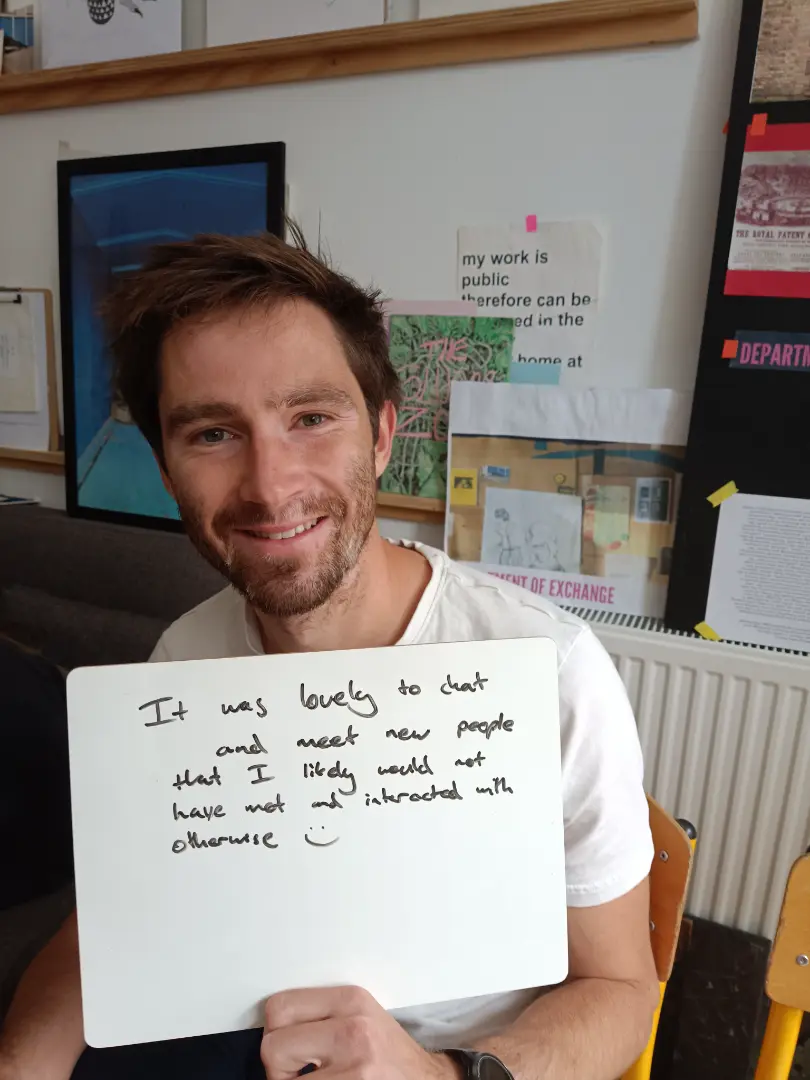 my work is
public
therefore can be
ed in the
home at
THE
THE ROYAL PATENT
DEPARTM
MENT OF EXCHANGE
It was lovely to chat
and meet new people
that I likely would not
have met and interacted with
otherwise :)